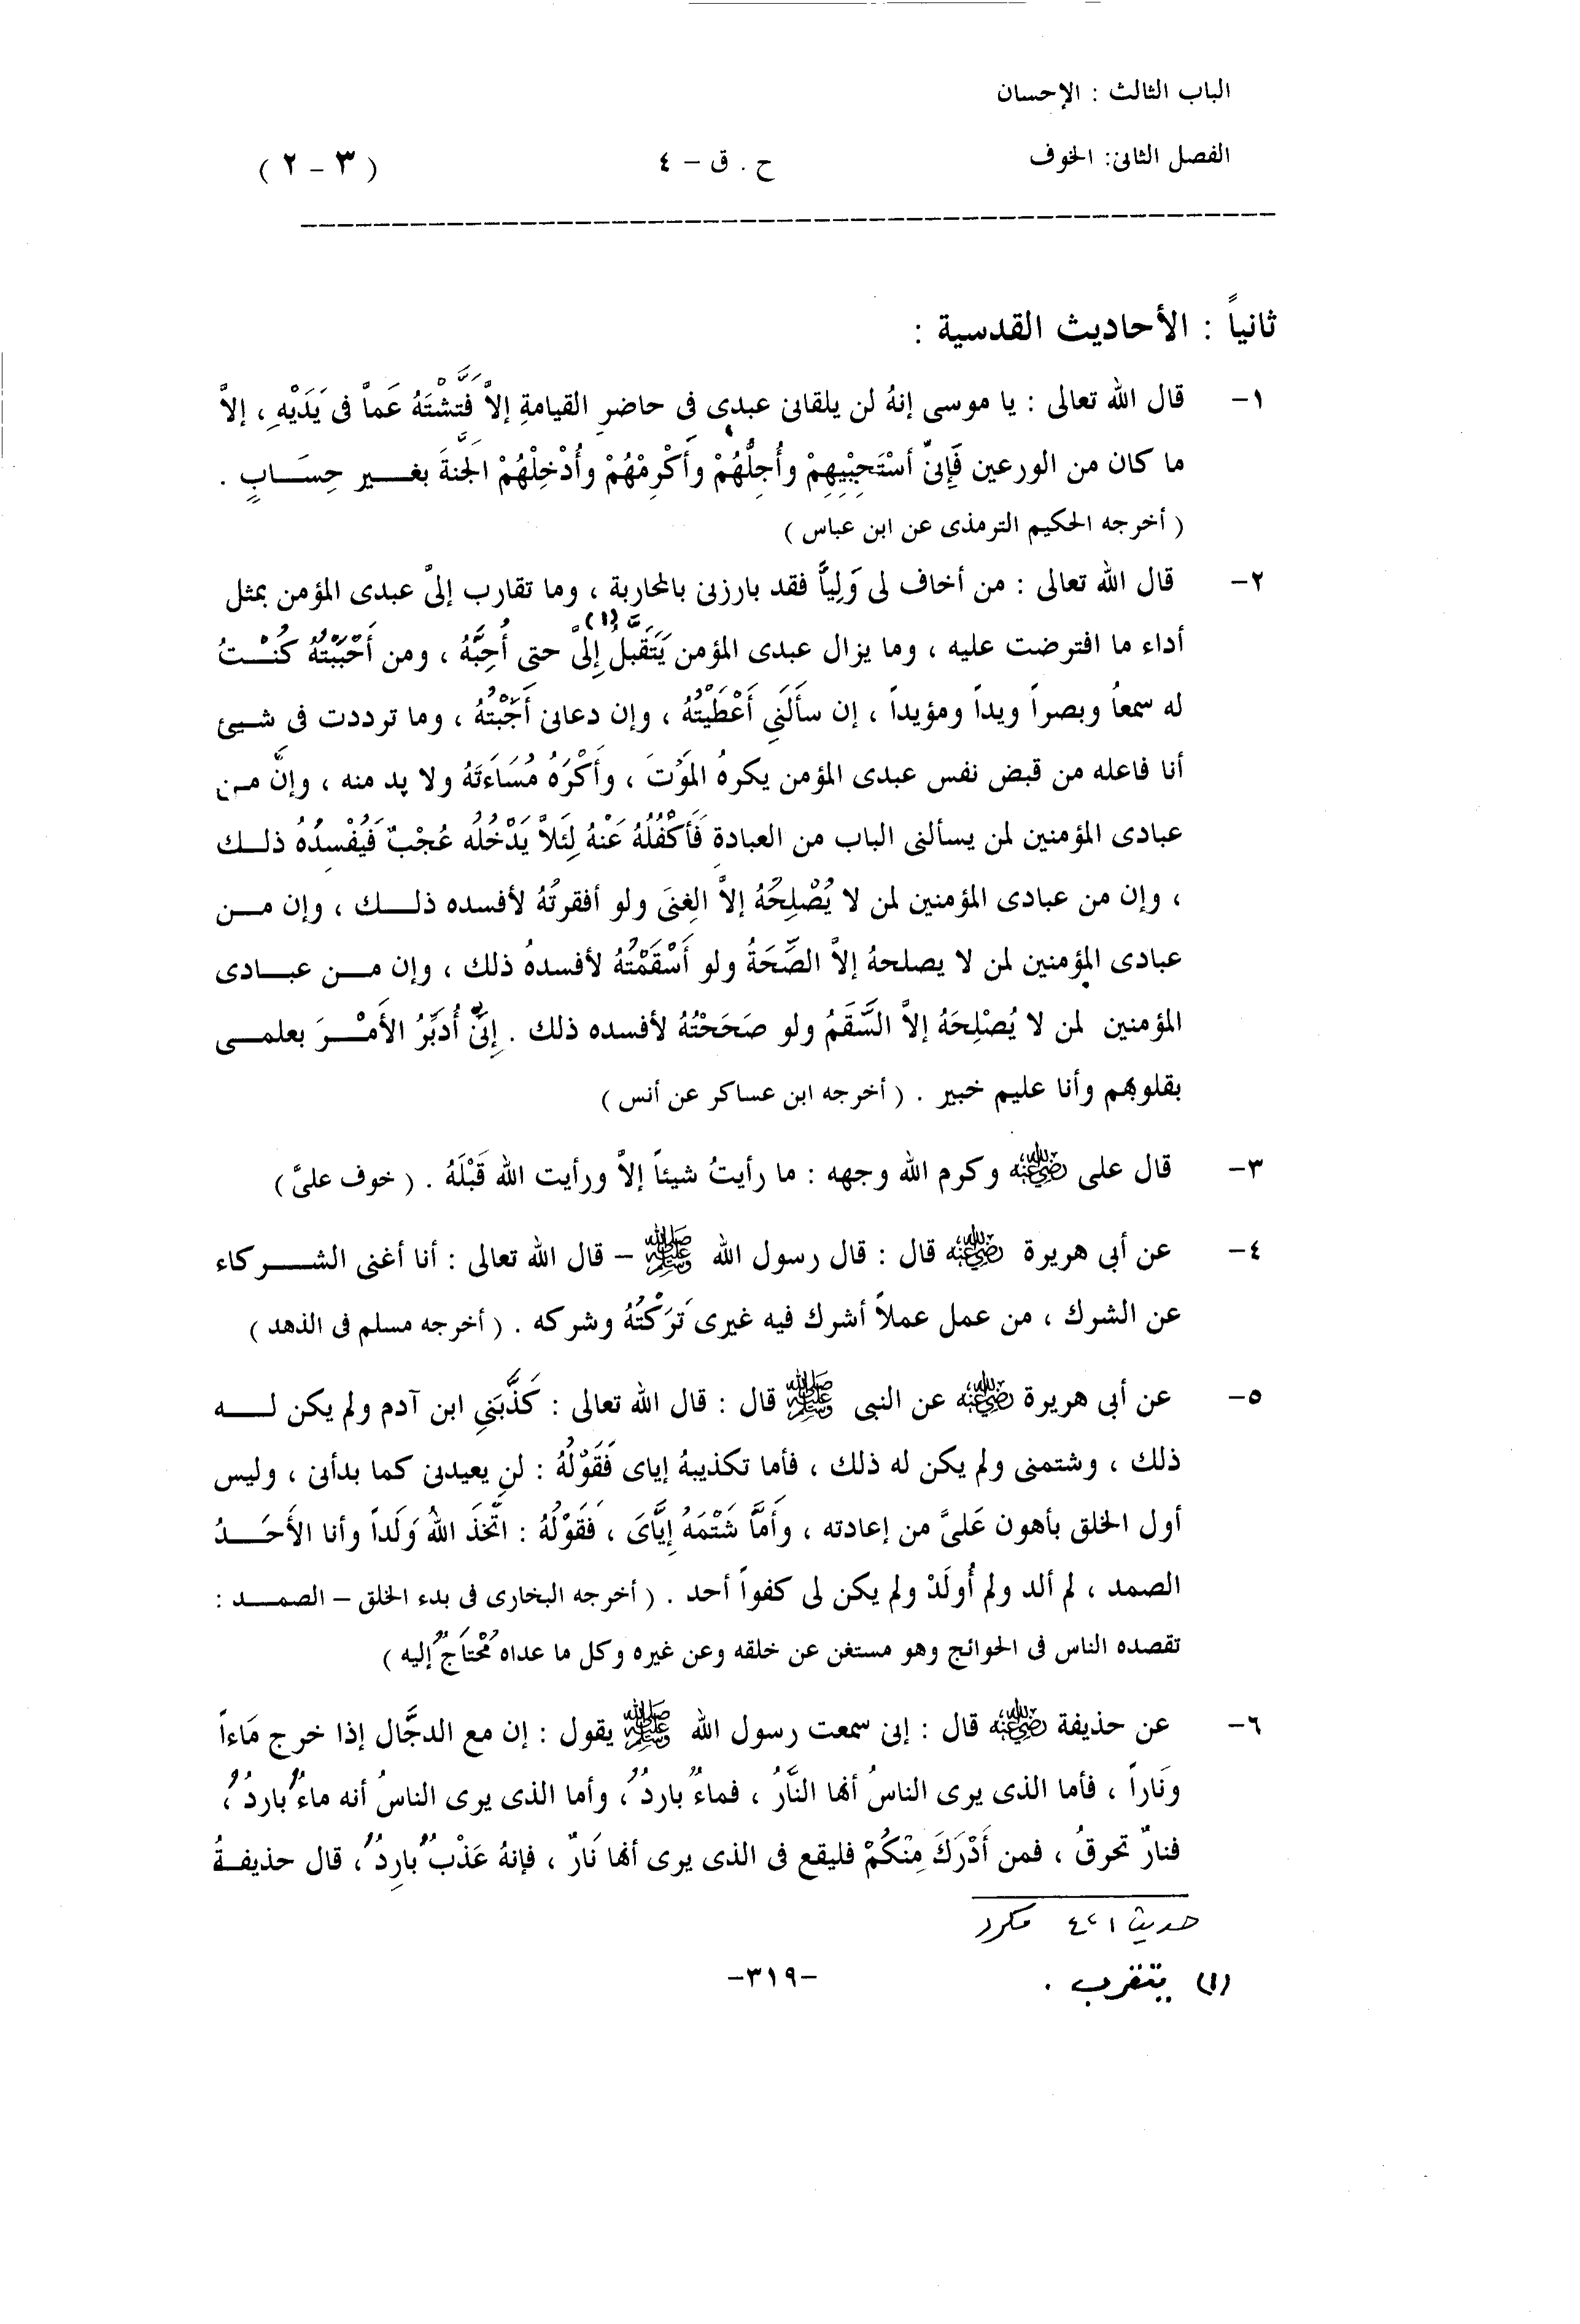 الباب الثالث : الإحسان
الفصل الثانى: الخوف ح . ق – ٤ ( ٣ – ٢ )
ثانياً : الأحاديث القدسية :
١- قال الله تعالى : يا موسى إنهُ لن يلقانى عبدى فى حاضرِ القيامةِ إلاَّ فَتَّشْتَهُ عَماَّ فى يَدَيْهِ ، إلاَّ
ما كان من الورعين فَإِنىِّ أسْتَحِبْيِهِمْ وأُجِلُّهُمْ وأَكْرِمْهُمْ وأُدْخِلْهُمْ الجَنَّةَ بغـــير حِسَـــابٍ .
( أخرجه الحكيم الترمذى عن ابن عباس )
٢- قال الله تعالى : من أخاف لى وَلِيَّاً فقد بارزنى بالمحاربة ، وما تقارب إلىَّ عبدى المؤمن بمثل
أداء ما افترضت عليه ، وما يزال عبدى المؤمن يَتَقَبَّلُ (١) إِلىَّ حتى أُحِبَّهُ ، ومن أَحْبَبْتُهُ كُنْـــتُ
له سمعاً وبصراً ويداً ومؤيداً ، إن سأَلَنيِ أَعْطَيْتُهُ ، وإن دعانى أَجَبْتُهُ ، وما ترددت فى شــيئ
أنا فاعله من قبض نفس عبدى المؤمن يكرهُ المَوْتَ ، وأَكْرَهُ مُسَاءَتَهُ ولا بد منه ، وإنَّ مــن
عبادى المؤمنين لمن يسألنى الباب من العبادة فَأَكْفُلُهُ عَنْهُ لِئَلاَّ يَدْخُلُه عُجْبٌ فَيُفْسِدُهُ ذلــك
، وإن من عبادى المؤمنين لمن لا يُصْلِحُهُ إلاَّ الغِنىَ ولو أفقرتُهُ لأفسده ذلـــك ، وإن مـــن
عبادى المؤمنين لمن لا يصلحهُ إلاَّ الصِّحَةُ ولو أَسْقَمْتُهُ لأفسدهُ ذلك ، وإن مـــن عبـــادى
المؤمنين لمن لا يُصْلِحَهُ إلاَّ السَّقَمُ ولو صَحَحْتُهُ لأفسده ذلك . إِنىِّ أُدَبِّرُ الأَمْـــرَ بعلمـــى
بقلوبهم وأنا عليم خبير . ( أخرجه ابن عساكر عن أنس )
٣- قال على رضي الله عنه وكرم الله وجهه : ما رأيتُ شيئاً إلاَّ ورأيت الله قَبْلَهُ . ( خوف علىَّ )
٤- عن أبى هريرة رضي الله عنه قال : قال رسول الله ﷺ – قال الله تعالى : أنا أغنى الشـــركاء
عن الشرك ، من عمل عملاً أشرك فيه غيرى تَرَكْتُهُ وشركه . ( أخرجه مسلم فى الذهد )
٥- عن أبى هريرة رضي الله عنه عن النبى ﷺ قال : قال الله تعالى : كَذَّبَنيِ ابن آدم ولم يكن لـــه
ذلك ، وشتمنى ولم يكن له ذلك ، فأما تكذيبهُ إياى فَقَوْلُهُ : لن يعيدنى كما بدأنى ، وليس
أول الخلق بأهون عَلىَّ من إعادته ، وأَمَّا شَتْمَهُ إِيَّاىَ ، فَقَوْلُهُ : اتَّخَذَ اللهُ وَلَداً وأنا الأَحَـــدُ
الصمد ، لم ألد ولم أُولَدْ ولم يكن لى كفواً أحد . ( أخرجه البخارى فى بدء الخلق – الصمـــد :
تقصده الناس فى الحوائج وهو مستغن عن خلقه وعن غيره وكل ما عداه مُحْتَاجٌ إليه )
٦- عن حذيفة رضي الله عنه قال : إنى سمعت رسول الله ﷺ يقول : إن مع الدجَّال إذا خرج مَاءاً
ونَاراً ، فأما الذى يرى الناسُ أنها النَّارُ ، فماءٌ باردٌ ، وأما الذى يرى الناسُ أنه ماءٌ باردٌ ،
فنارٌ تحرقُ ، فمن أَدْرَكَ مِنْكُمْ فليقع فى الذى يرى أنها نَارٌ ، فإنهُ عَذْبٌ بارِدٌ ، قال حذيفـةُ
حديث ٤،١ مكرر
(١) يتقرب .
-٣١٩-